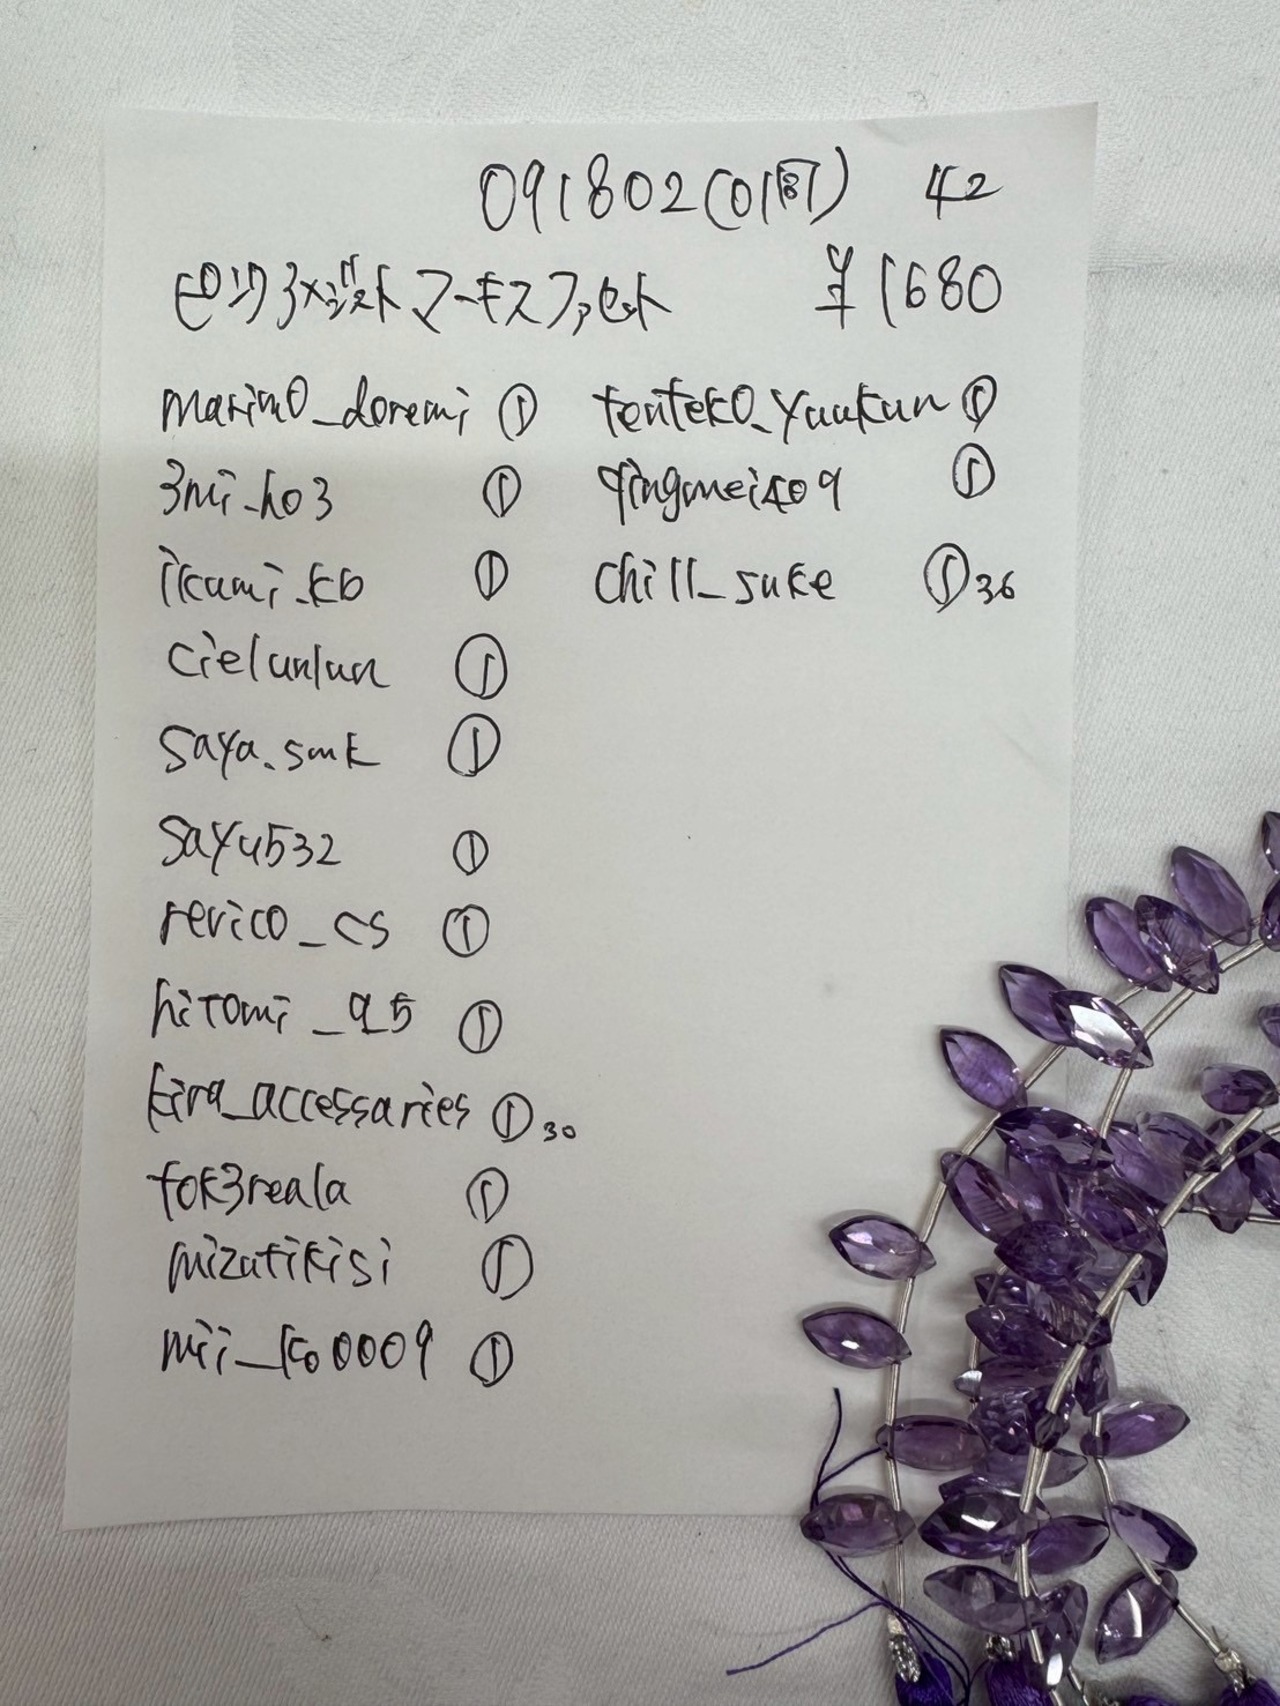 091802(01同) 42
ピンクアメジストマーキスファセット ¥1680
marimo_doremi ①
3mi_ho3 ①
ikumi.kb ①
cielunlun ①
saya.smk ①
sayu532 ①
revico_cs ①
hitomi_95 ①
kira_accessaries ①30
fok3reala ①
mizutikisi ①
mii_ko0009 ①
tenteko_yuukun ①
qingmei409 ①
chill_suke ①36